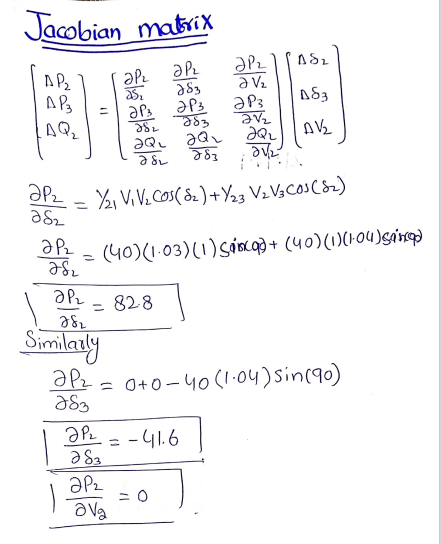 Jacobian matrix
[ΔP₂ ΔP₃ ΔQ₂] = [∂P₂/∂δ₂ ∂P₂/∂δ₃ ∂P₂/∂V₂ ∂P₃/∂δ₂ ∂P₃/∂δ₃ ∂P₃/∂V₂ ∂Q₂/∂δ₂ ∂Q₂/∂δ₃ ∂Q₂/∂V₂] [Δδ₂ Δδ₃ ΔV₂]
∂P₂/∂δ₂ = Y₂₁ V₁V₂ cos(δ₂) + Y₂₃ V₂V₃ cos(δ₂)
∂P₂/∂δ₂ = (40)(1.03)(1) sin(90) + (40)(1)(1.04) sin(90)
∂P₂/∂δ₂ = 82.8
Similarly
∂P₂/∂δ₃ = 0+0-40(1.04) sin(90)
∂P₂/∂δ₃ = -41.6
∂P₂/∂V₂ = 0